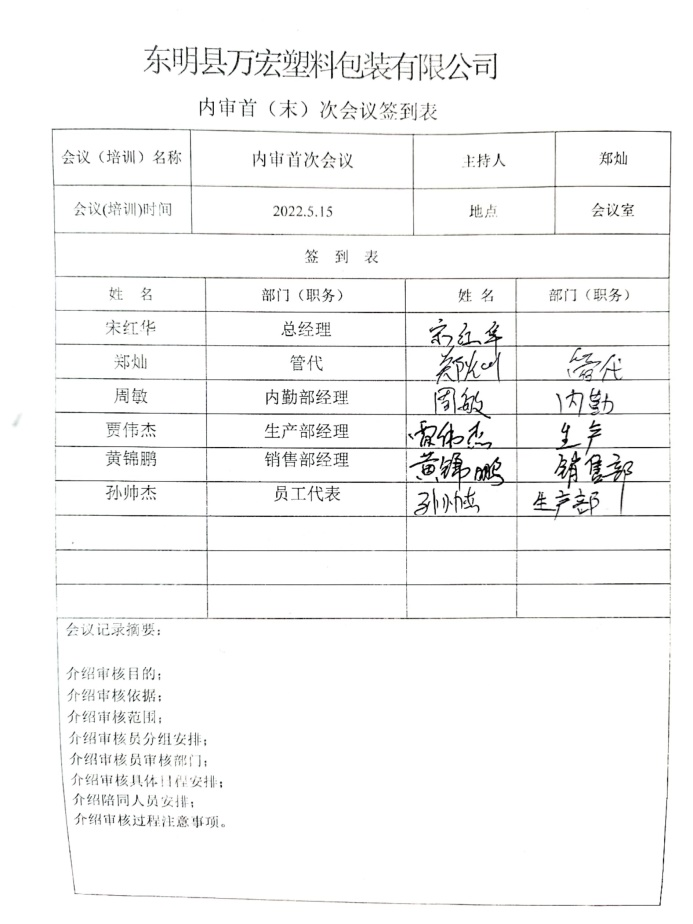 东明县万宏塑料包装有限公司
内审首（末）次会议签到表
会议（培训）名称 内审首次会议 主持人 郑灿
会议(培训)时间 2022.5.15 地点 会议室
签 到 表
姓 名 部门（职务） 姓 名 部门（职务）
宋红华 总经理 宋红华
郑灿 管代 郑灿 管代
周敏 内勤部经理 周敏 内勤
贾伟杰 生产部经理 贾伟杰 生产
黄锦鹏 销售部经理 黄锦鹏 销售部
孙帅杰 员工代表 孙帅杰 生产部
会议记录摘要：
介绍审核目的；
介绍审核依据；
介绍审核范围；
介绍审核员分组安排；
介绍审核员审核部门；
介绍审核具体日程安排；
介绍陪同人员安排；
介绍审核过程注意事项。